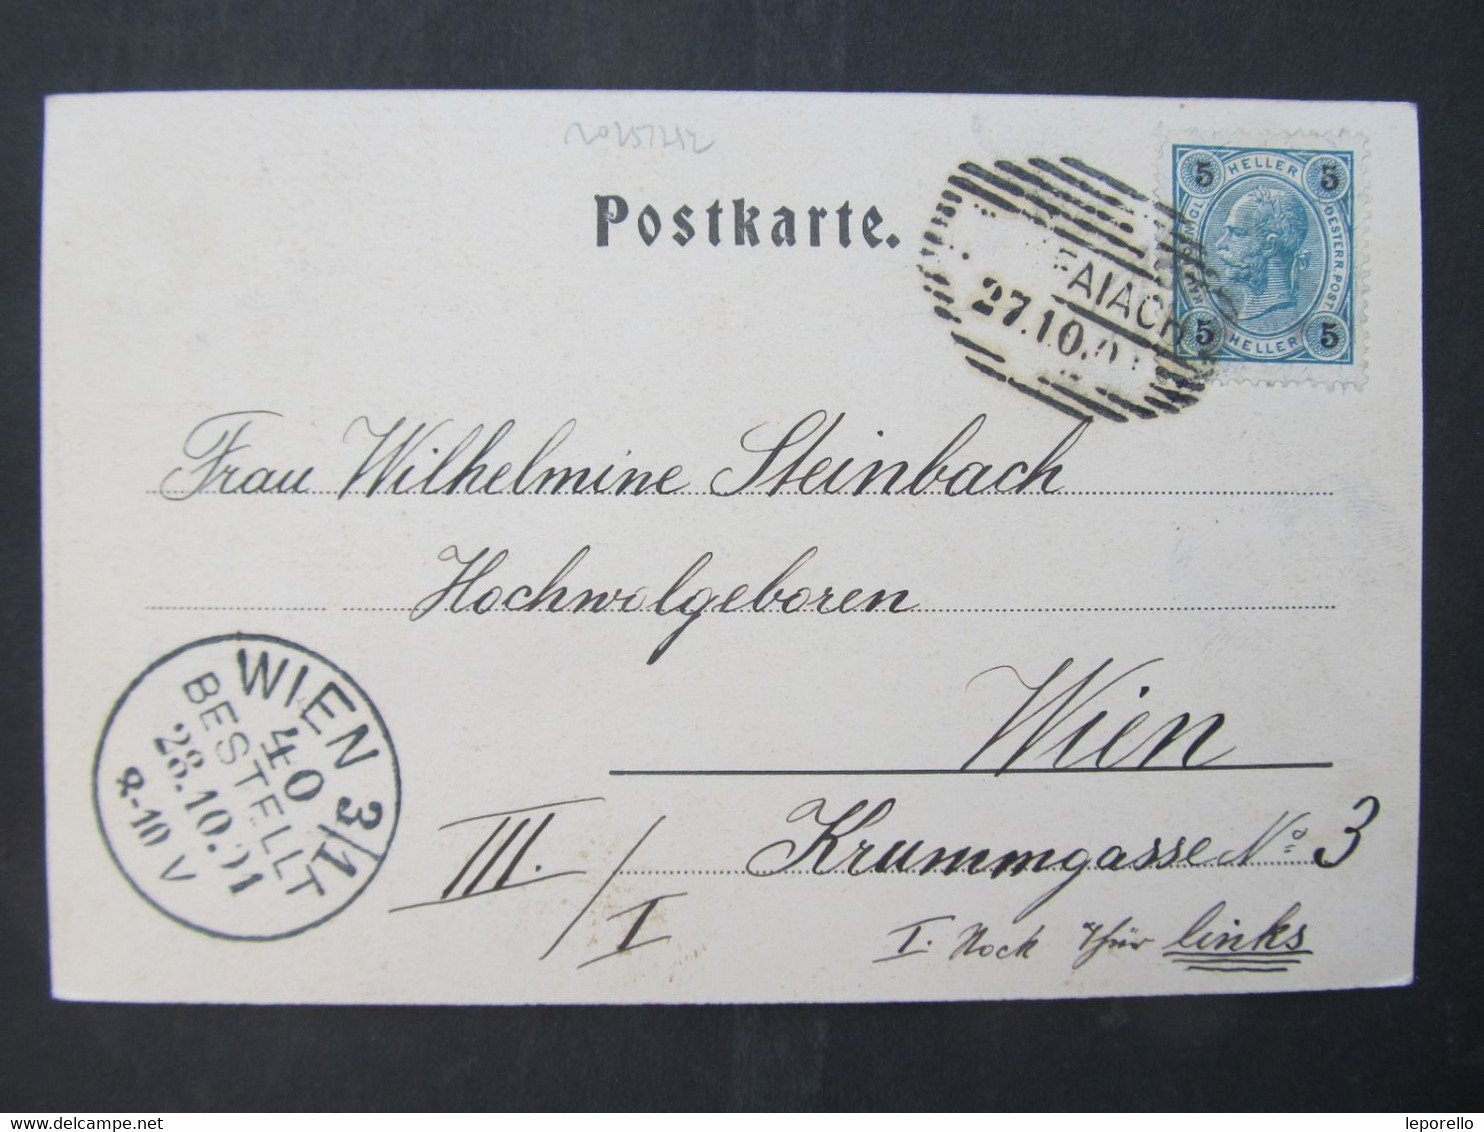 Postkarte.
5 HELLER 5
OESTERR. POST.
5 HELLER 5
FAIACH
27.10.01
Frau Wilhelmine Steinbach
Hochwolgeboren
Wien
III./I Krummgasse No 3
I. Stock Thür links
WIEN 3/1
40
BESTELLT
28.10.01
8-10 V
delcampe.net
leporello